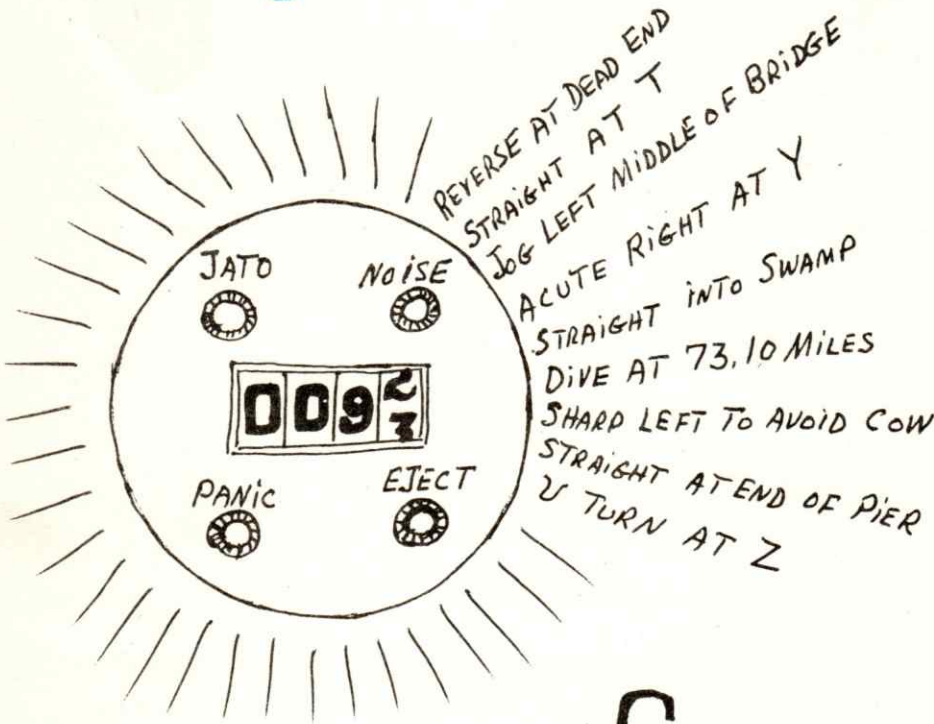 REVERSE AT DEAD END
STRAIGHT AT T
JOG LEFT MIDDLE OF BRIDGE
ACUTE RIGHT AT Y
STRAIGHT INTO SWAMP
DIVE AT 73.10 MILES
SHARP LEFT TO AVOID COW
STRAIGHT AT END OF PIER
U TURN AT Z
JATO NOISE
009
PANIC EJECT